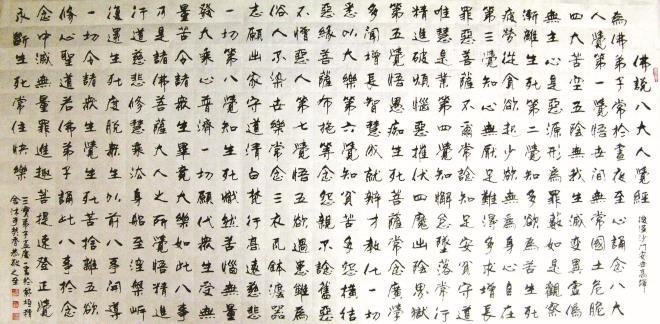 佛說八大人覺經 後漢沙門安世高譯
為佛弟子常於晝夜至心誦念八大
人覺第一覺悟世間無常國土危脆
四大苦空五陰無我生滅變異虛偽
無主心是惡源形為罪藪如是觀察
漸離生死第二覺知多欲為苦生死
疲勞從貪欲起少欲無為身心自在
第三覺知心無厭足唯得多求增長
罪惡菩薩不爾常念知足安貧守道
唯慧是業第四覺知懈怠墜落常行
精進破煩惱惡摧伏四魔出陰界獄
第五覺悟愚癡生死菩薩常念廣學
多聞增長智慧成就辯才教化一切
悉以大樂第六覺知貧苦多怨橫結
惡緣菩薩布施等念怨親不念舊惡
不憎惡人第七覺悟五欲過患雖為
俗人不染世樂常念三衣瓦鉢法器
志願出家守道清白梵行高遠慈悲
一切第八覺知生死熾然苦惱無量
發大乘心普濟一切願代眾生受無
量苦令諸眾生畢竟大樂如此八事
乃是諸佛菩薩大人之所覺悟精進
行道慈悲修慧乘法身船至涅槃岸
復還生死度脫眾生以前八事開導
一切令諸眾生覺生死苦捨離五欲
修心聖道若佛弟子誦此八事於念
念中滅無量罪進趣菩提速登正覺
永斷生死常住快樂
三寶弟子